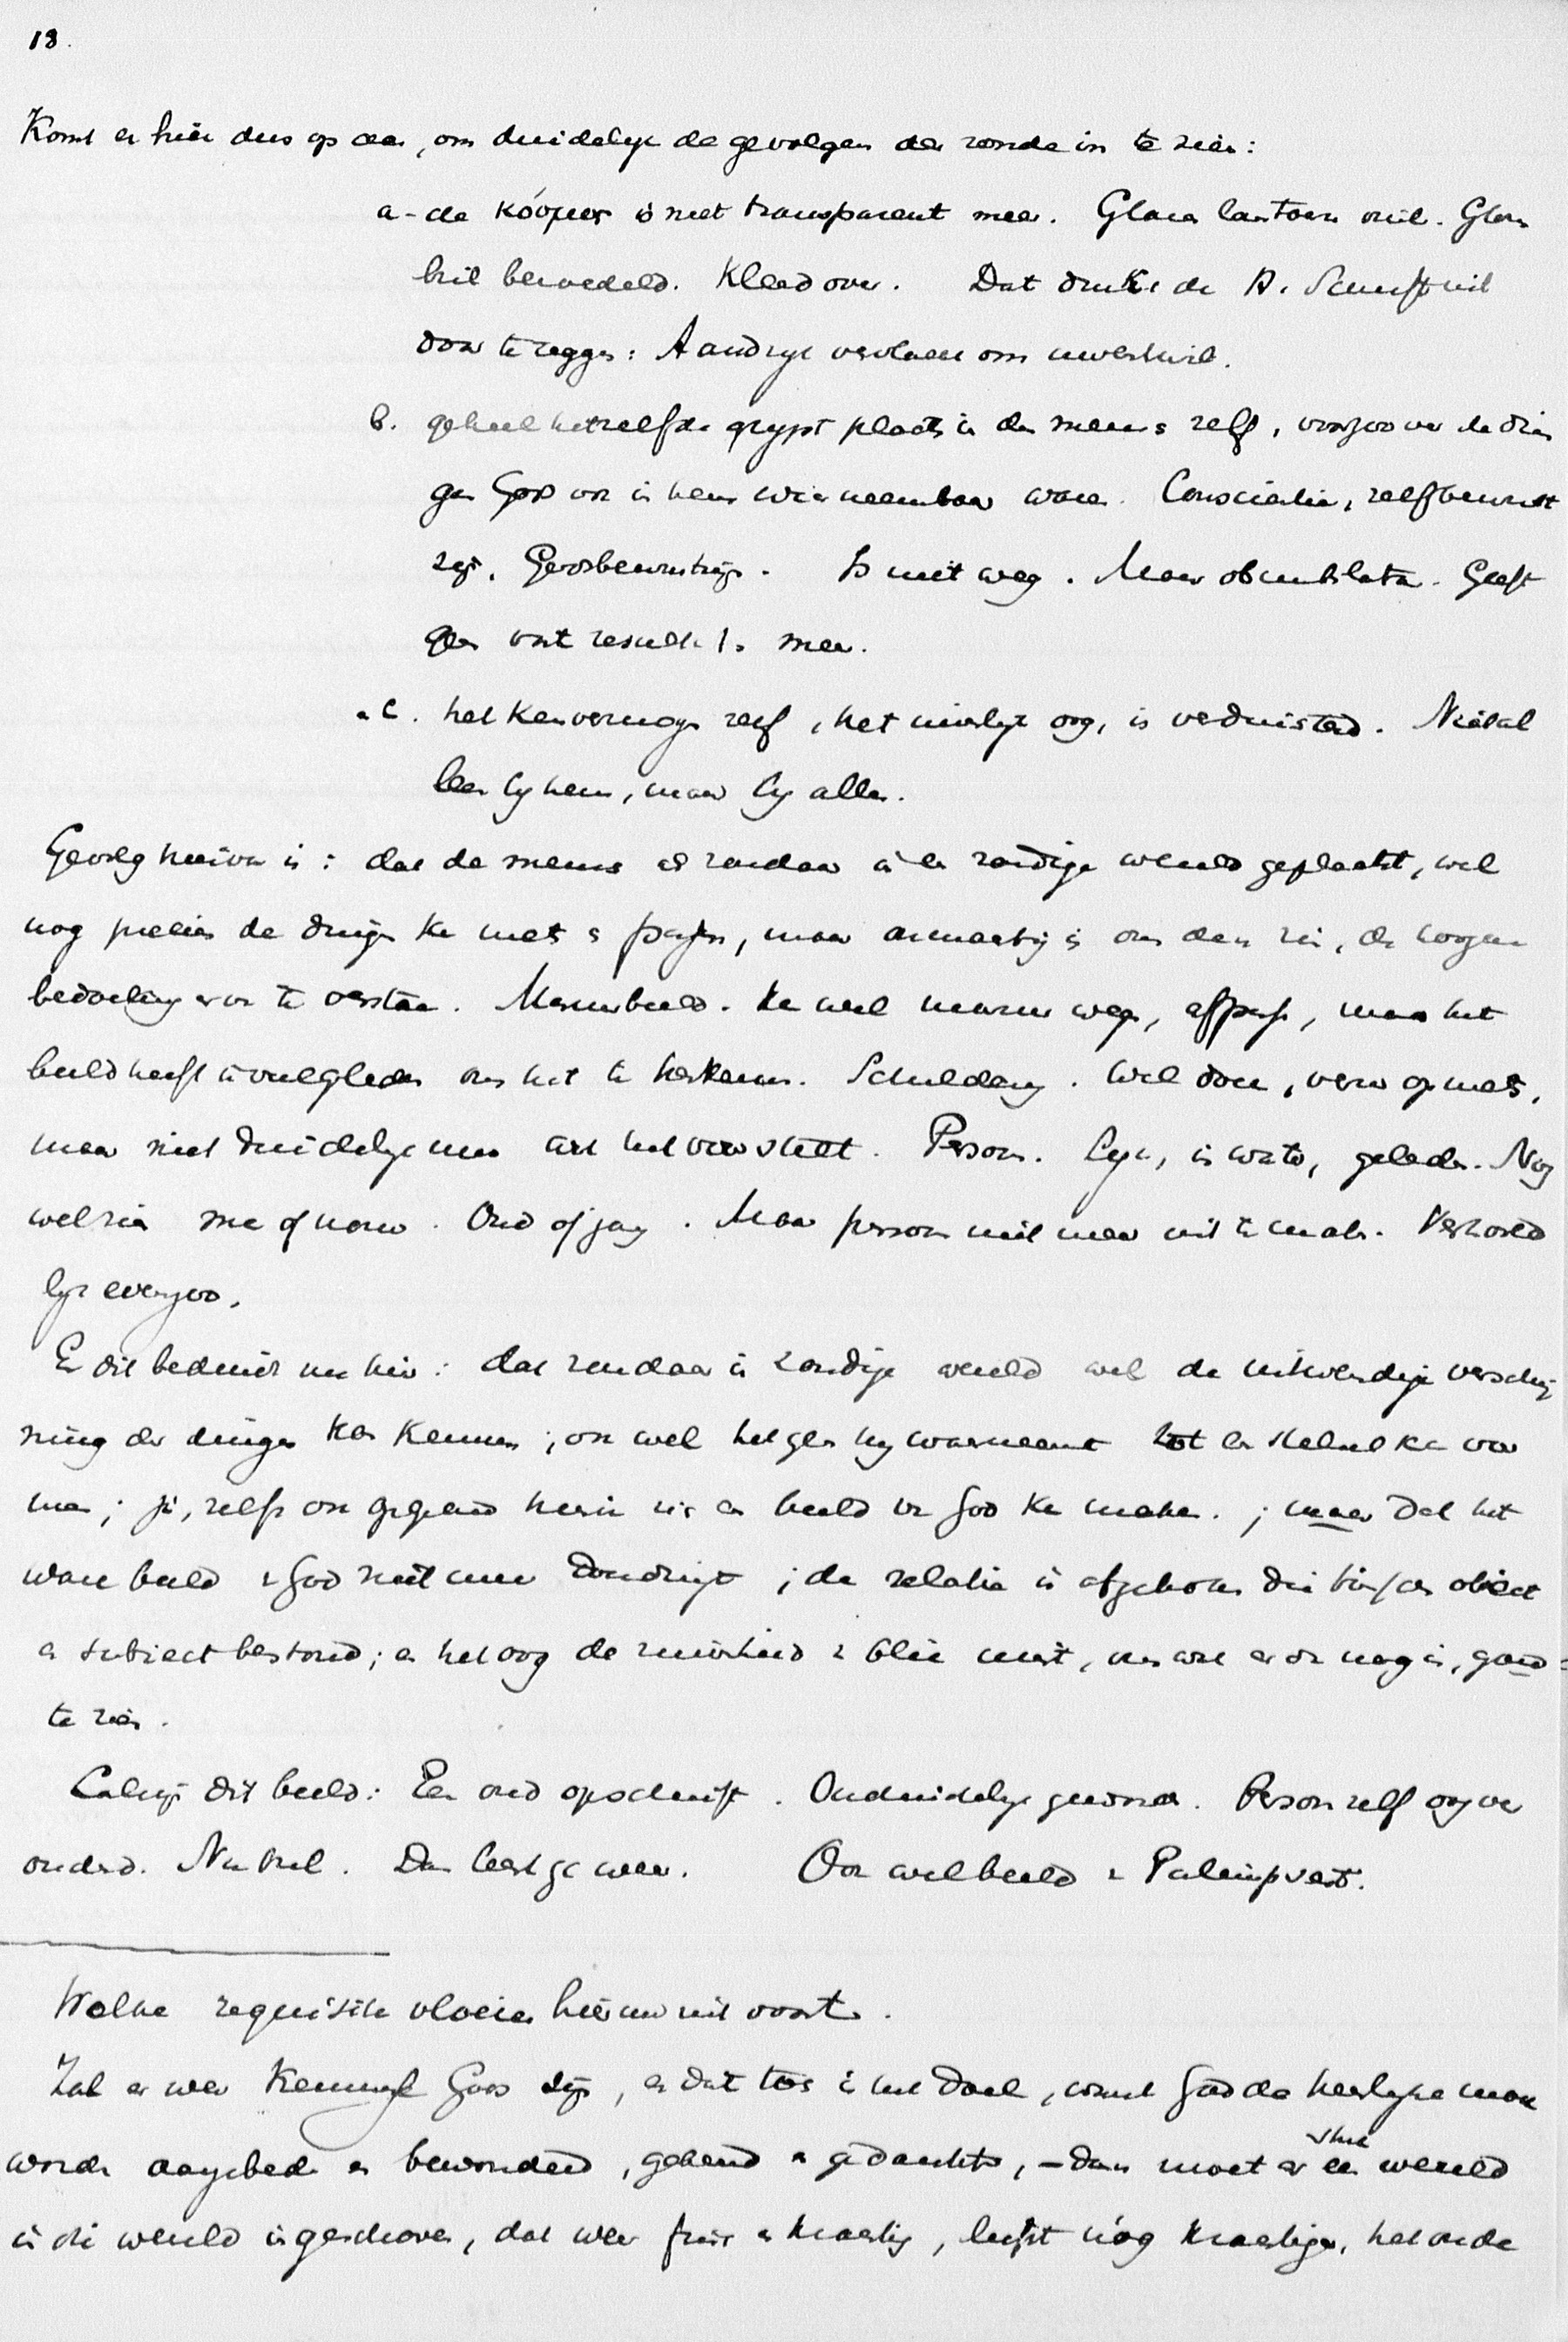 18.
Komt er hier dus op aan, om duidelijk de gevolgen der zonde in te zien:
a - de κόσμος is niet transparant meer. Glazen lantaarn vuil. Glazen
bril bewasemd. Kleed over. Dat drukt de H. Schrift uit
door te zeggen: Aardrijk vervloekt om uwentwil.
b. geheel hetzelfde grijpt plaats in den mensch zelf, voorzoover de din
gen Gods ook in hem waarneembaar waren. Conscientie, zelfbewust
zijn, Godsbewustzijn. Is niet weg. Maar obnubilata. Geeft
geen vast resultaat meer.
c. het kenvermogen zelf, het innerlijk oog, is verduisterd. Niet al
leen bij hem, maar bij allen.
Gevolg hiervan is: dat de mensch als zondaar in een zondige wereld geplaatst, wel
nog precies de dingen kan meten en passen, maar onmachtig is om den zin, de hoogere
bedoeling er van te verstaan. Marmerbeeld. Kan wel marmer wegen, afpassen, maar het
beeld heeft te veel geleden om het te herkennen. Schilderij. Wel doek, verw op meten,
maar niet duidelijk meer wat het voorstelt. Persoon. Lijk, in water, geleden. Nog
wel zien man of vrouw. Oud of jong. Maar persoon niet meer uit te maken. Verhoud
lijk evenzoo.
En dit beduidt nu hier: dat zondaar in zondige wereld wel de uitwendige verschij
ning der dingen kan kennen; ook wel hetgeen hij waarneemt tot een stelsel kan vor
men; ja, zelfs ook op grond hiervan zich een beeld van God kan maken.; maar dat het
ware beeld van God niet meer doordringt; de relatie is afgebroken die tusschen object
en subject bestond; en het oog de zuiverheid van blik mist, om wat er dan nog is, goed
te zien.
Calvijn dit beeld: Een oud opschrift. Onduidelijk geworden. Persoon zelf oog ver
ouderd. Nu bril. Dan leest ge weer. Ook wel beeld van Palimpsest.
Welke requisiten vloeien hier nu uit voort.
Zal er weer Kennisse Gods zijn, en dat toch is het doel, want God de heerlijke moet
worden aangebeden en bewonderd, gekend en gedankt, – dan moet er een wereld
in die wereld ingeschoven, dat weer frisch en krachtig, liefst nóg krachtiger, het oude